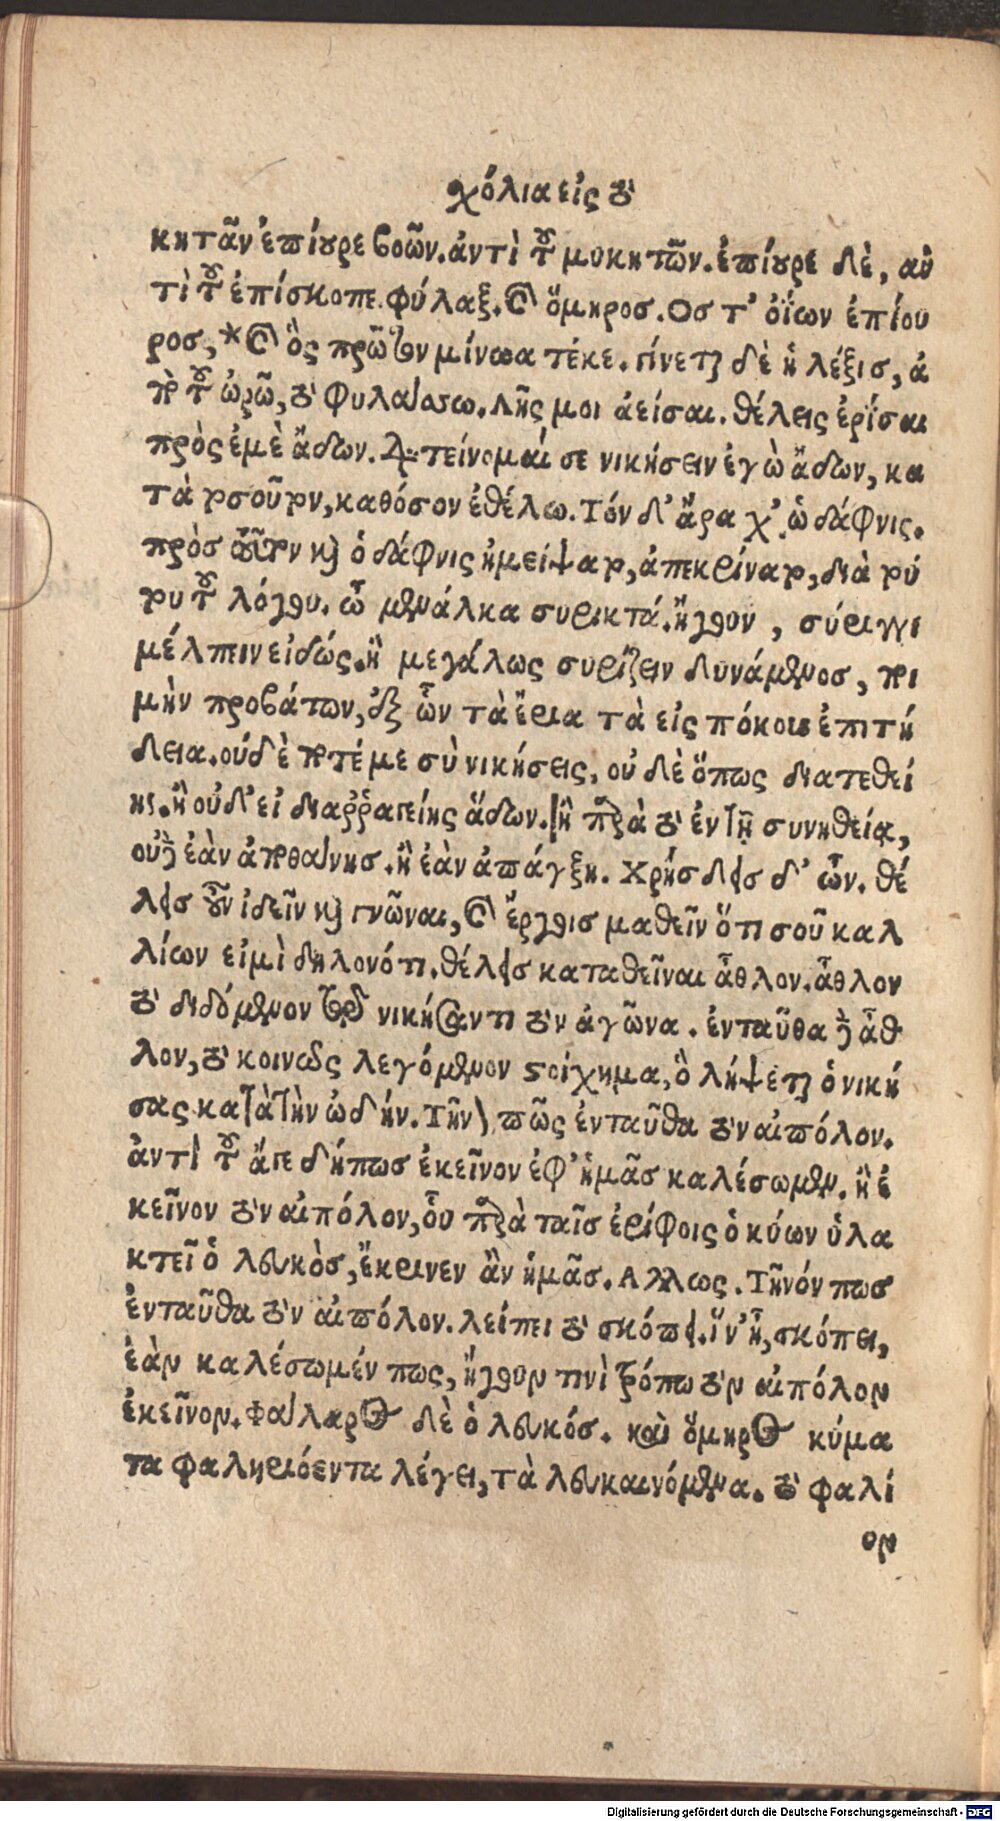 χόλια εἰς τὸ
κητᾶν ἐπίουρε βοῶν. ἀντὶ τοῦ μυκητῶν. ἐπίουρε δὲ, αν
τὶ τοῦ ἐπίσκοπε. φύλαξ. καὶ ὅμηροσ. Οσ τ' ὀΐων ἐπίου
ροσ, * καὶ ὃς πρῶτον μίνωα τέκε. γίνεται δὲ ἡ λέξισ, ἀ
πὸ τοῦ ὠρῶ, τὸ φυλάσσω. λῆς μοι ἀείσαι. θέλεις ἐρίσαι
πρὸς ἐμὲ ἄδων. διατείνομαί σε νικήσειν ἐγὼ ἄδων, κα
τὰ τοσοῦτον, καθόσον ἐθέλω. Τόν δ' ἄρα χ' ὡ δάφνις.
πρὸσ τοῦτον καὶ ὁ δάφνις ἠμείψατο, ἀπεκρίνατο, διὰ τοι
του τοῦ λόγου. ὦ μενάλκα συρικτά. ἤγουν, σύριγγι
μέλπειν εἰδώς. ἢ μεγάλως συρίζειν δυνάμενοσ, ποι
μὴν προβάτων, ἐξ ὧν τὰ ἔρια τὰ εἰς πόκους ἐπιτή
δεια. οὐδὲ ποτέ με σὺ νικήσεις, οὐδὲ ὅπως διατεθεί
ης. ἢ οὐδ' εἰ διαρῥαγείης ἄδων. ἢ παρὰ τὸ ἐν τῇ συνηθεία,
οὐδ' ἐὰν ἀποθάνησ. ἢ ἐὰν ἀπάγξη. Χρήσδεισ δ' ὦν. θέ
λεισ οὖν ἰδεῖν καὶ γνῶναι, καὶ ἔργοισ μαθεῖν ὅτι σοῦ καλ
λίων εἰμὶ δηλονότι. θέλεισ καταθεῖναι ἆθλον. ἆθλον
τὸ διδόμενον τῷ νικήσαντι τὸν ἀγῶνα. ἐνταῦθα δὲ ἆθ
λον, τὸ κοινῶς λεγόμενον στοίχημα, ὃ λήψεται ὁ νική
σας κατὰ τὴν ὠδήν. Τῆν) πῶς ἐνταῦθα τὸν αἰπόλον.
ἀντὶ τοῦ ἄγε δήπωσ ἐκεῖνον ἐφ' ἡμᾶσ καλέσωμεν. ἢ ἐ
κεῖνον τὸν αἰπόλον, οὗ παρὰ ταῖσ ἐρίφοις ὁ κύων ὑλα
κτεῖ ὁ λευκὸσ, ἔκρινεν ἂν ἡμᾶσ. Αλλως. Τῆνόν πωσ
ἐνταῦθα τὸν αἰπόλον. λείπει τὸ σκόπει. ἵν' ᾖ, σκόπει,
ἐὰν καλέσωμέν πως, ἤγουν τινὶ τρόπω τὸν αἰπόλον
ἐκεῖνον. Φάλαρος δὲ ὁ λευκόσ. καὶ ὅμηρος κύμα
τα φαληριόεντα λέγει, τὰ λευκαινόμενα. τὸ φαλί
ον